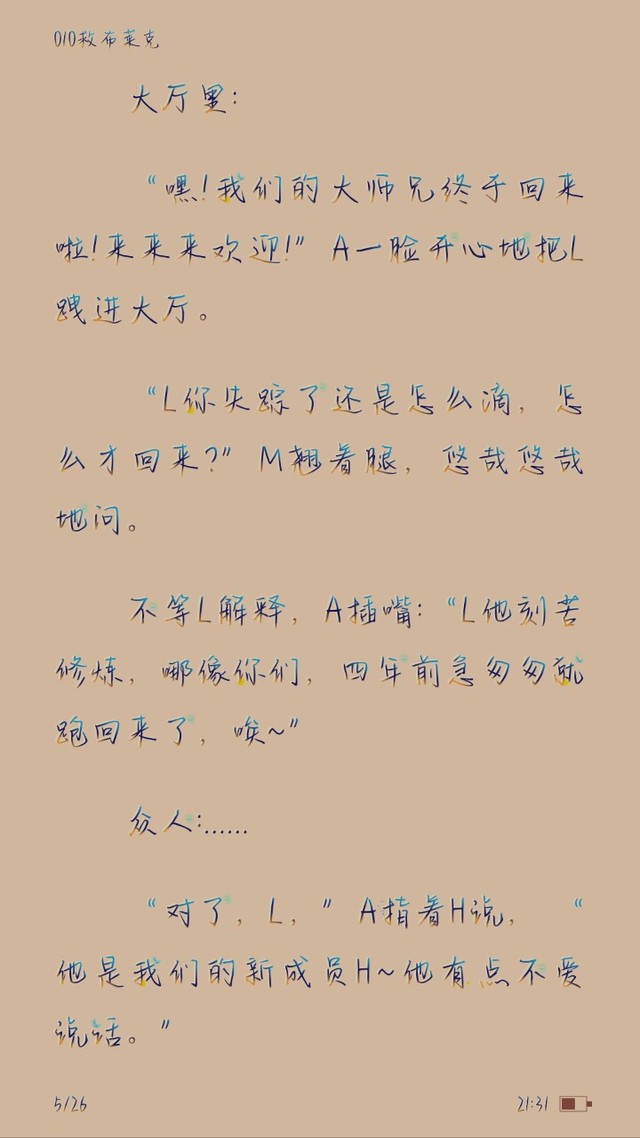 010救布莱克
大厅里：
“嘿！我们的大师兄终于回来
啦！来来来欢迎！”A一脸开心地把L
跩进大厅。
“L你失踪了还是怎么滴，怎
么才回来？”M翘着腿，悠哉悠哉
地问。
不等L解释，A插嘴：“L他刻苦
修炼，哪像你们，四年前急匆匆就
跑回来了，唉~”
众人：……
“对了，L，”A指着H说，“
他是我们的新成员H~他有点不爱
说话。”
5/26
21:31